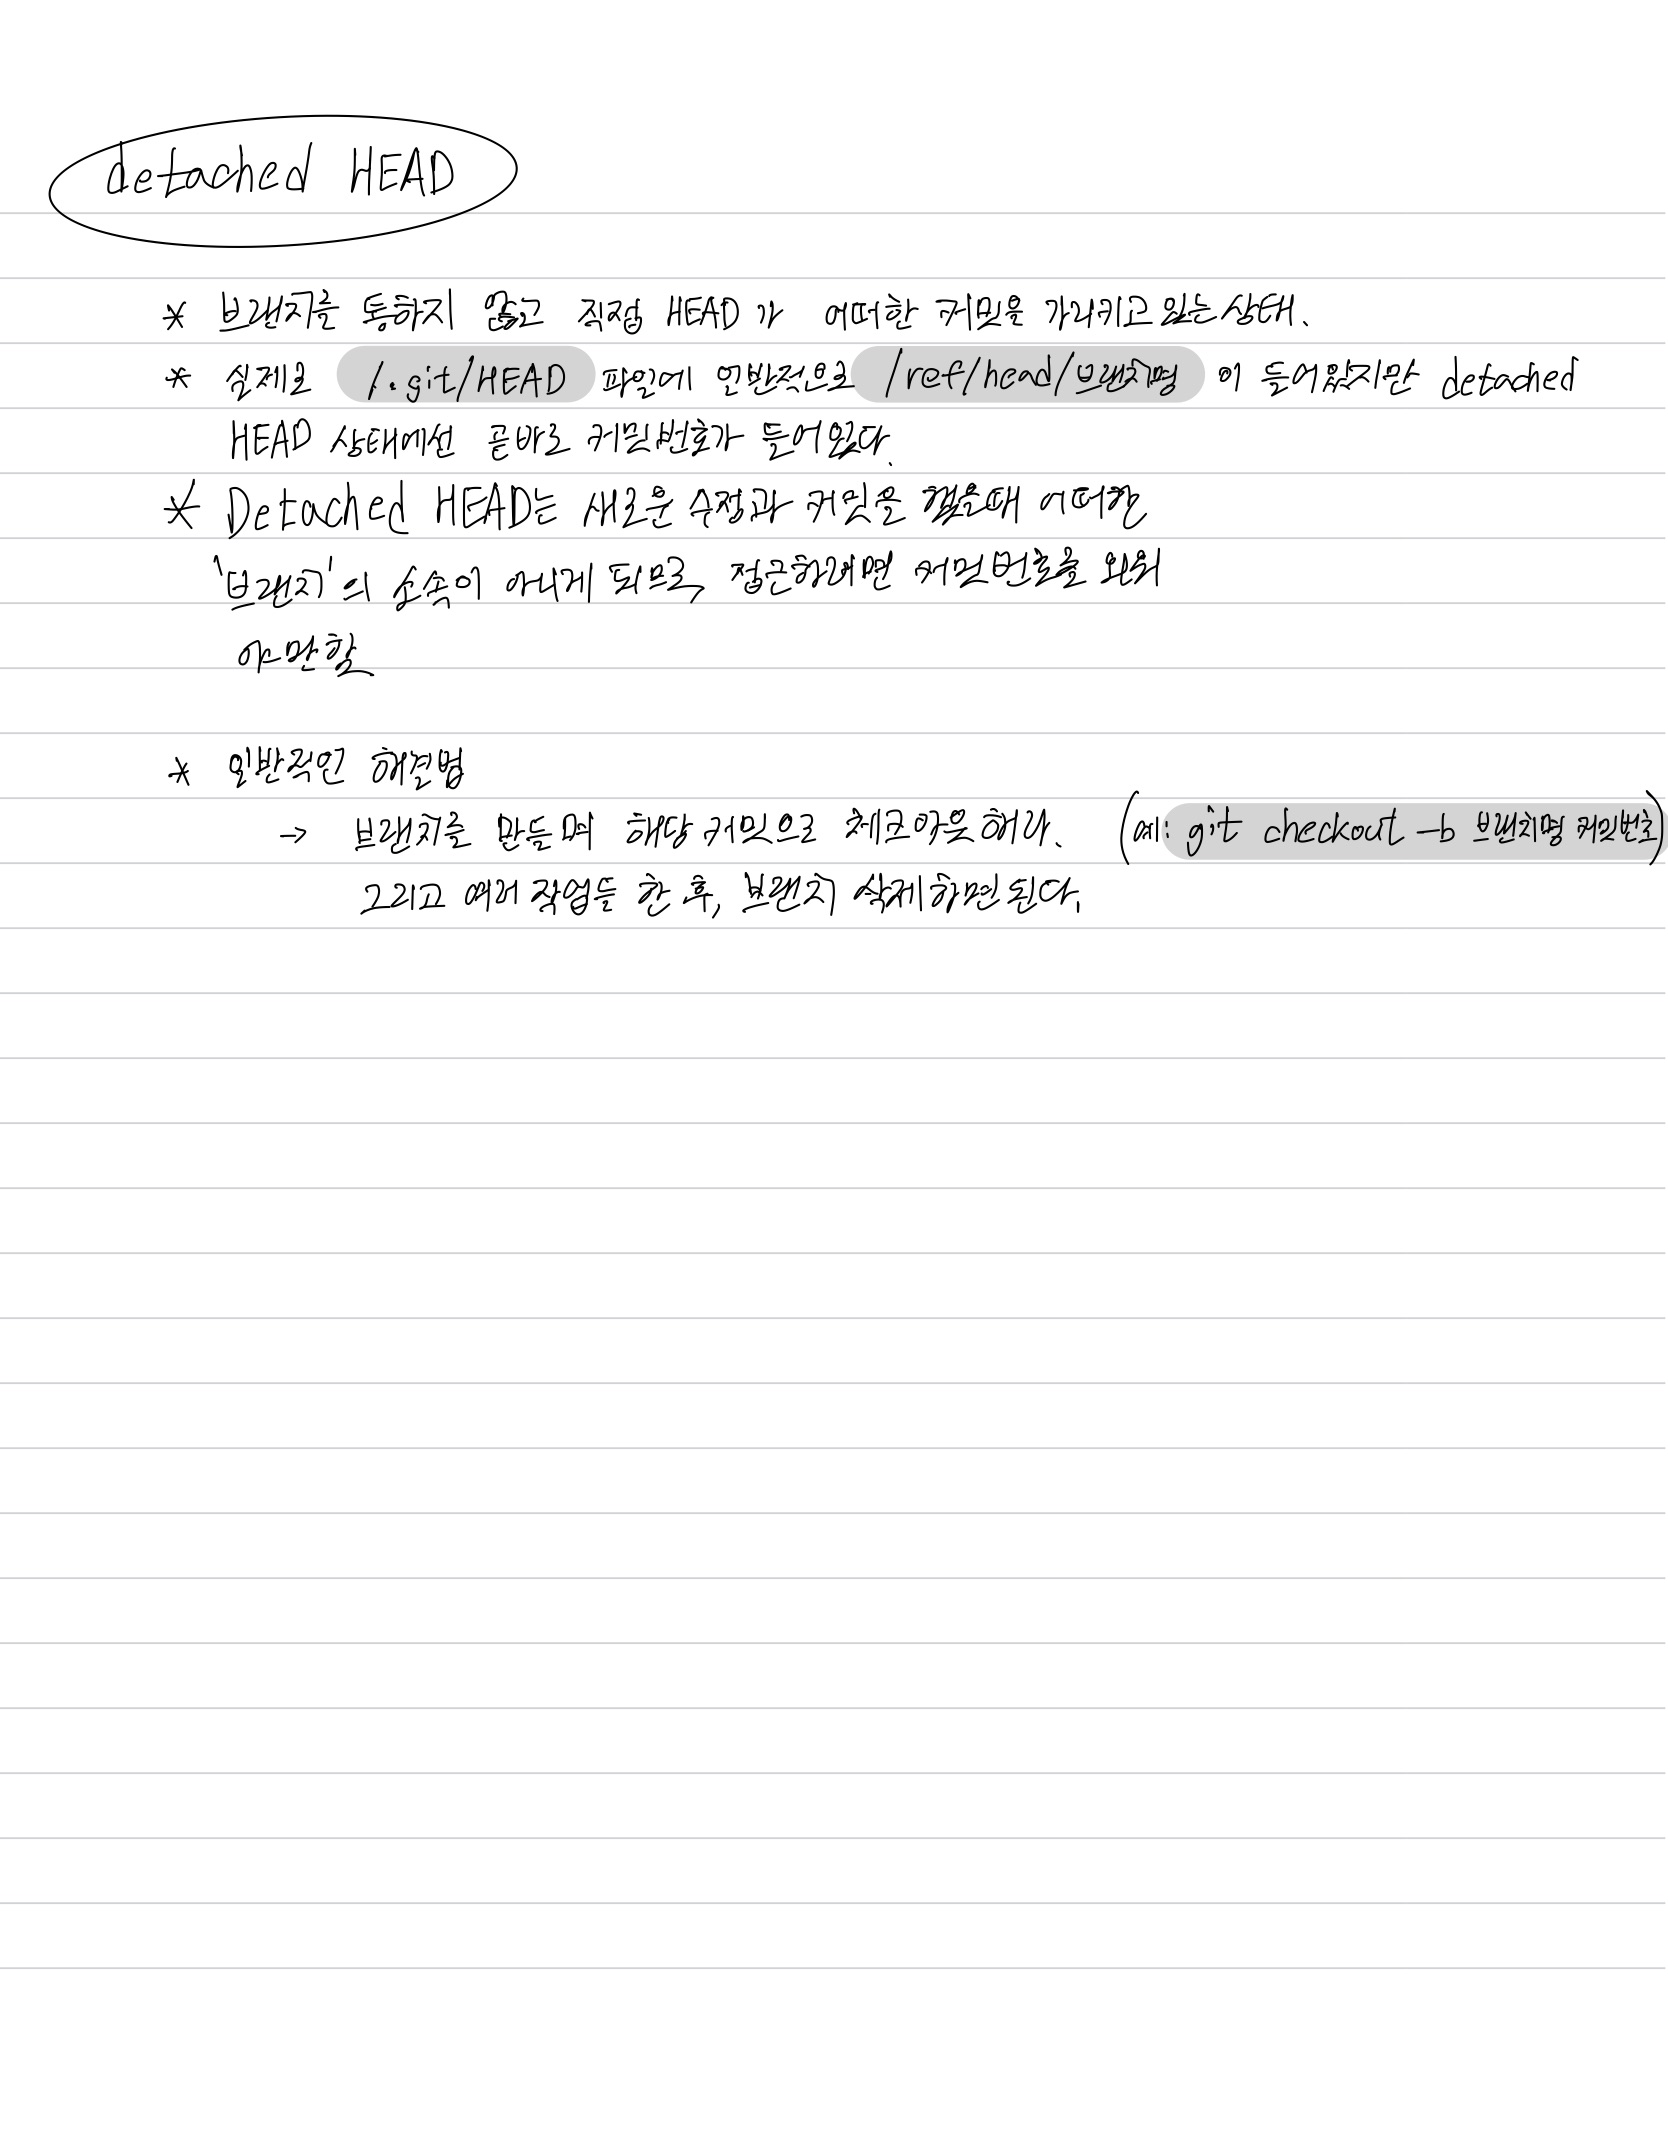 detached HEAD
* 브랜치를 통하지 않고 직접 HEAD가 어떠한 커밋을 가리키고 있는 상태.
* 실제로 /.git/HEAD 파일에 일반적으로 /ref/head/브랜치명 이 들어있지만 detached
HEAD 상태에선 곧바로 커밋번호가 들어있다.
* Detached HEAD는 새로운 수정과 커밋을 했을때 어떠한
'브랜치'의 소속이 아니게 되므로, 접근하려면 커밋번호를 외워
야만함
* 일반적인 해결법
→ 브랜치를 만들며 해당 커밋으로 체크아웃 해라. (예: git checkout -b 브랜치명 커밋번호)
그리고 여러 작업들 한 후, 브랜치 삭제하면 된다.